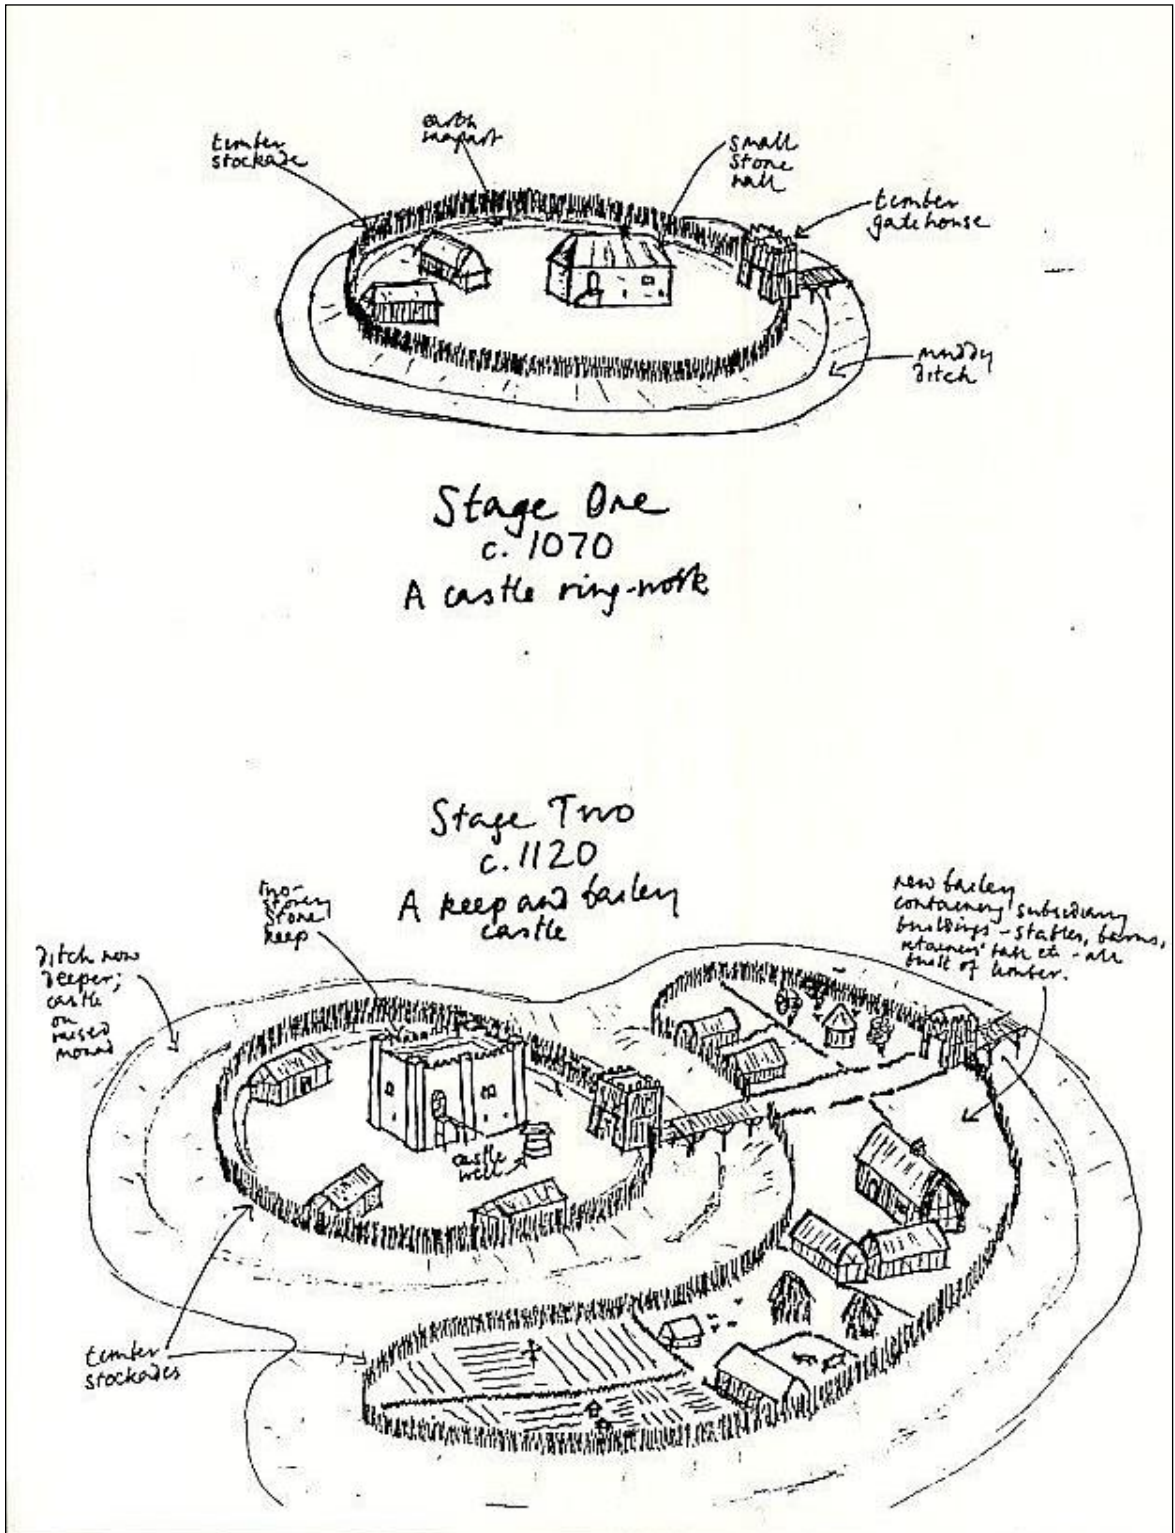 timber
stockade
earth
rampart
small
stone
hall
timber
gatehouse
muddy
ditch
Stage One
c. 1070
A castle ring-work
Stage Two
c. 1120
A keep and bailey
castle
two-
storey
stone
keep
ditch now
deeper;
castle
on
raised
mound
new bailey
containing subsidiary
buildings - stables, barns,
retainers' hall etc - all
built of timber.
castle
well
timber
stockades